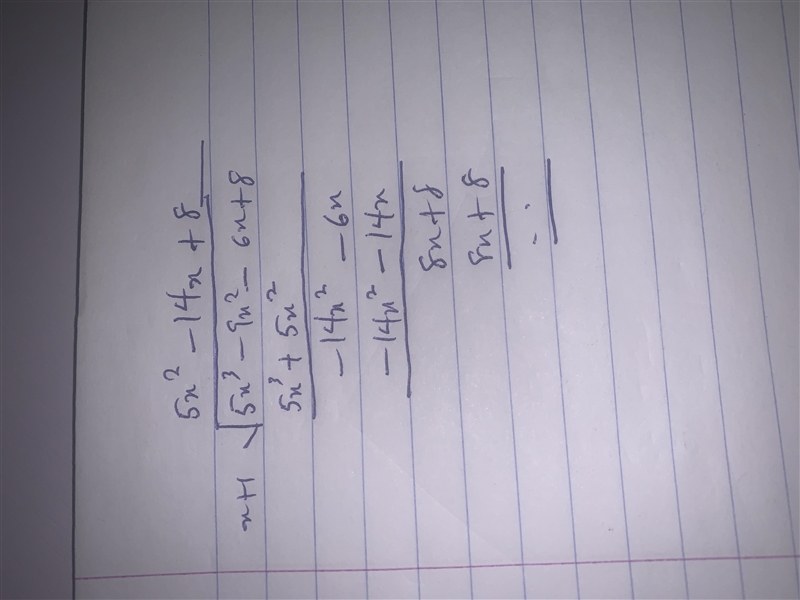 5x² - 14x + 8
x+1 √5x³ - 9x² - 6x + 8
5x³ + 5x²
-14x² - 6x
-14x² - 14x
8x + 8
8x + 8
- .